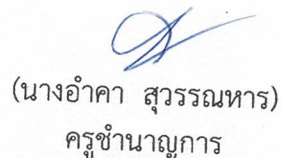 (นางอำคา สุวรรณหาร)
ครูชำนาญการ